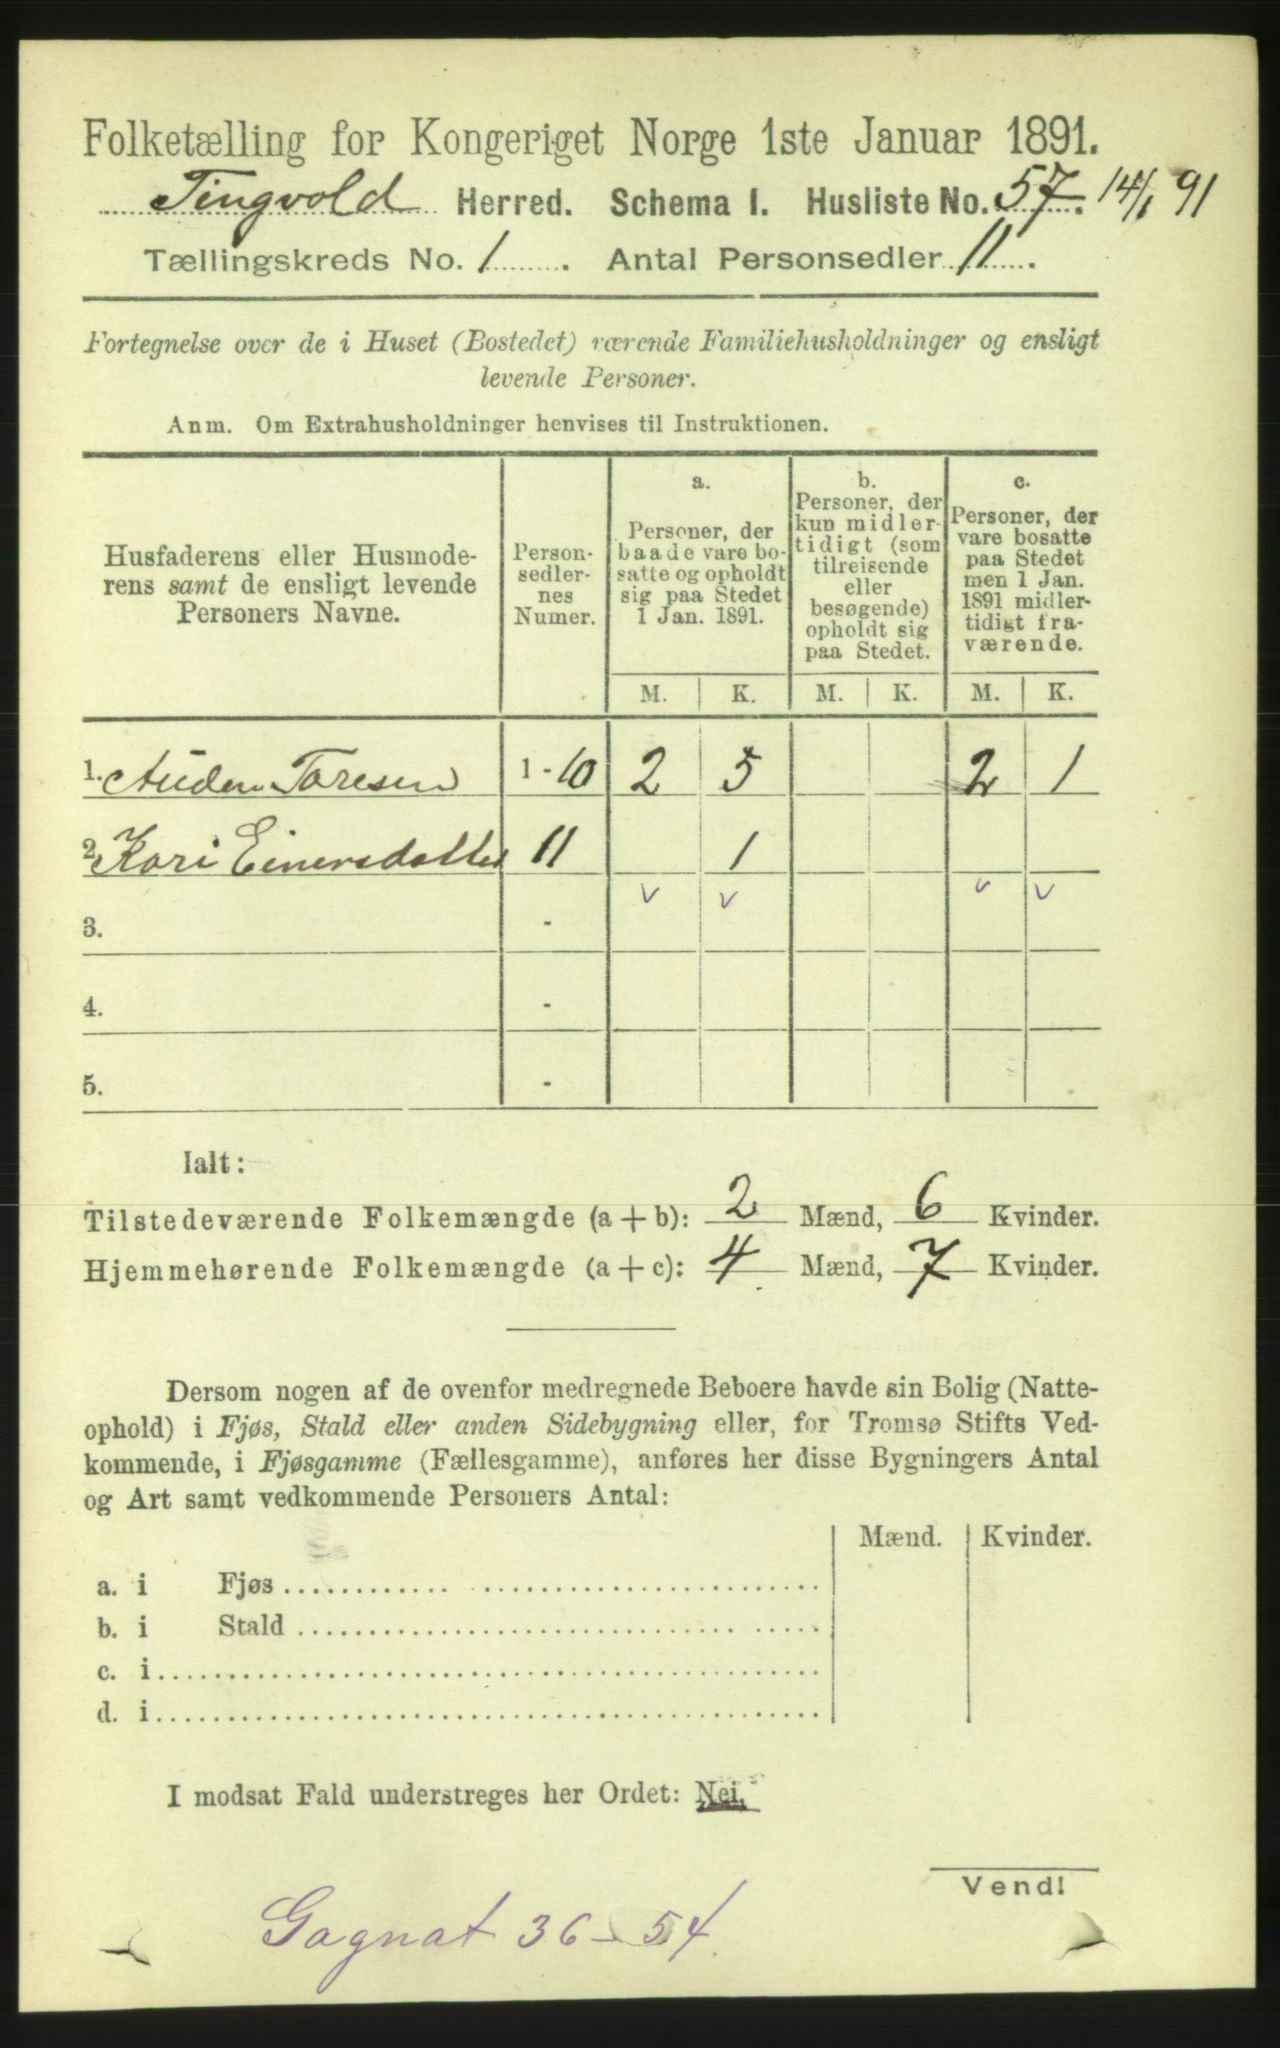 Folketælling for Kongeriget Norge 1ste Januar 1891.
Tingvold Herred. Schema I. Husliste No. 57. 14/1 91
Tællingskreds No. 1. Antal Personsedler 11.
Fortegnelse over de i Huset (Bostedet) værende Familiehusholdninger og ensligt
levende Personer.
Anm. Om Extrahusholdninger henvises til Instruktionen.
Husfaderens eller Husmode-
rens samt de ensligt levende
Personers Navne.
Person-
sedler-
nes
Numer.
a.
Personer, der
baade vare bo-
satte og opholdt
sig paa Stedet
1 Jan. 1891.
b.
Personer, der
kun midler-
tidigt (som
tilreisende
eller
besøgende)
opholdt sig
paa Stedet.
c.
Personer, der
vare bosatte
paa Stedet
men 1 Jan.
1891 midler-
tidigt fra-
værende.
M. K. M. K. M. K.
1. Auden Toresen 1 - 10 2 5 2 1
2. Kari Einersdatter 11 1
v v v v
3. -
4. -
5. -
Ialt:
Tilstedeværende Folkemængde (a + b): 2 Mænd, 6 Kvinder.
Hjemmehørende Folkemængde (a + c): 4 Mænd, 7 Kvinder.
Dersom nogen af de ovenfor medregnede Beboere havde sin Bolig (Natte-
ophold) i Fjøs, Stald eller anden Sidebygning eller, for Tromsø Stifts Ved-
kommende, i Fjøsgamme (Fællesgamme), anføres her disse Bygningers Antal
og Art samt vedkommende Personers Antal:
Mænd. Kvinder.
a. i Fjøs
b. i Stald
c. i
d. i
I modsat Fald understreges her Ordet: Nei.
Vend!
Gagnat 36 - 54.